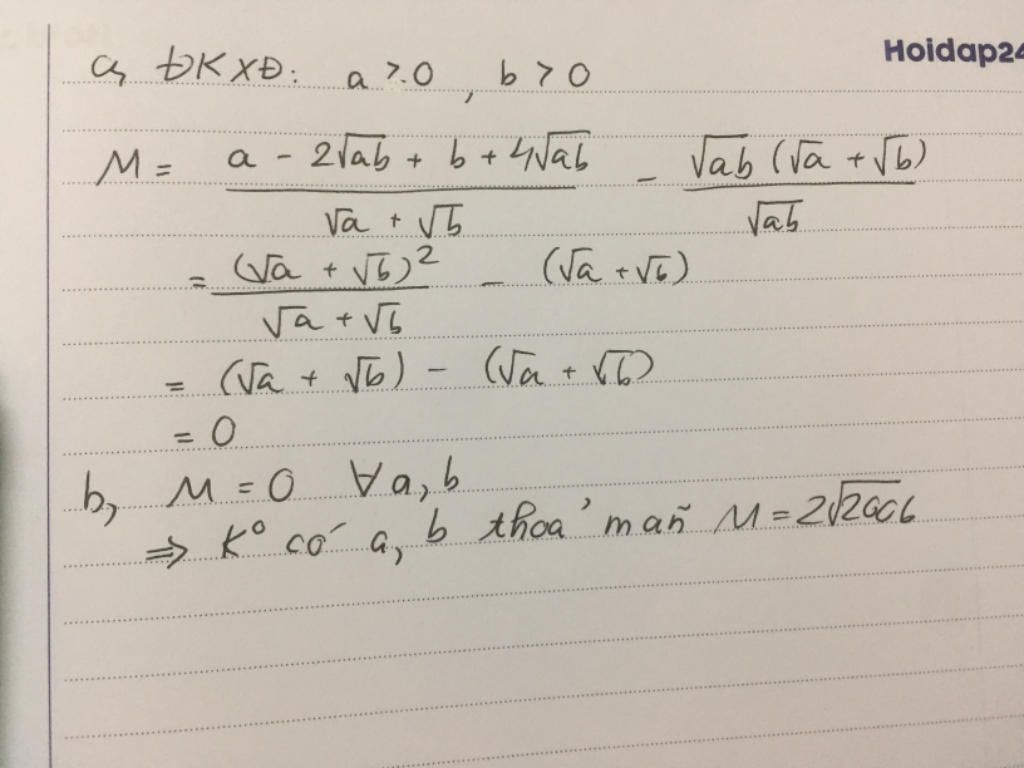 Hoidap24
a, ĐKXĐ: a > 0, b > 0
M = (a - 2√ab + b + 4√ab)/(√a + √b) - (√ab (√a + √b))/√ab
= (√a + √b)²/(√a + √b) - (√a + √b)
= (√a + √b) - (√a + √b)
= 0
b, M = 0 ∀a, b
⇒ K° có a, b thoả mãn M = 2√2006